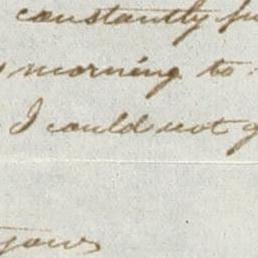 constantly
morning to
I could not
yours